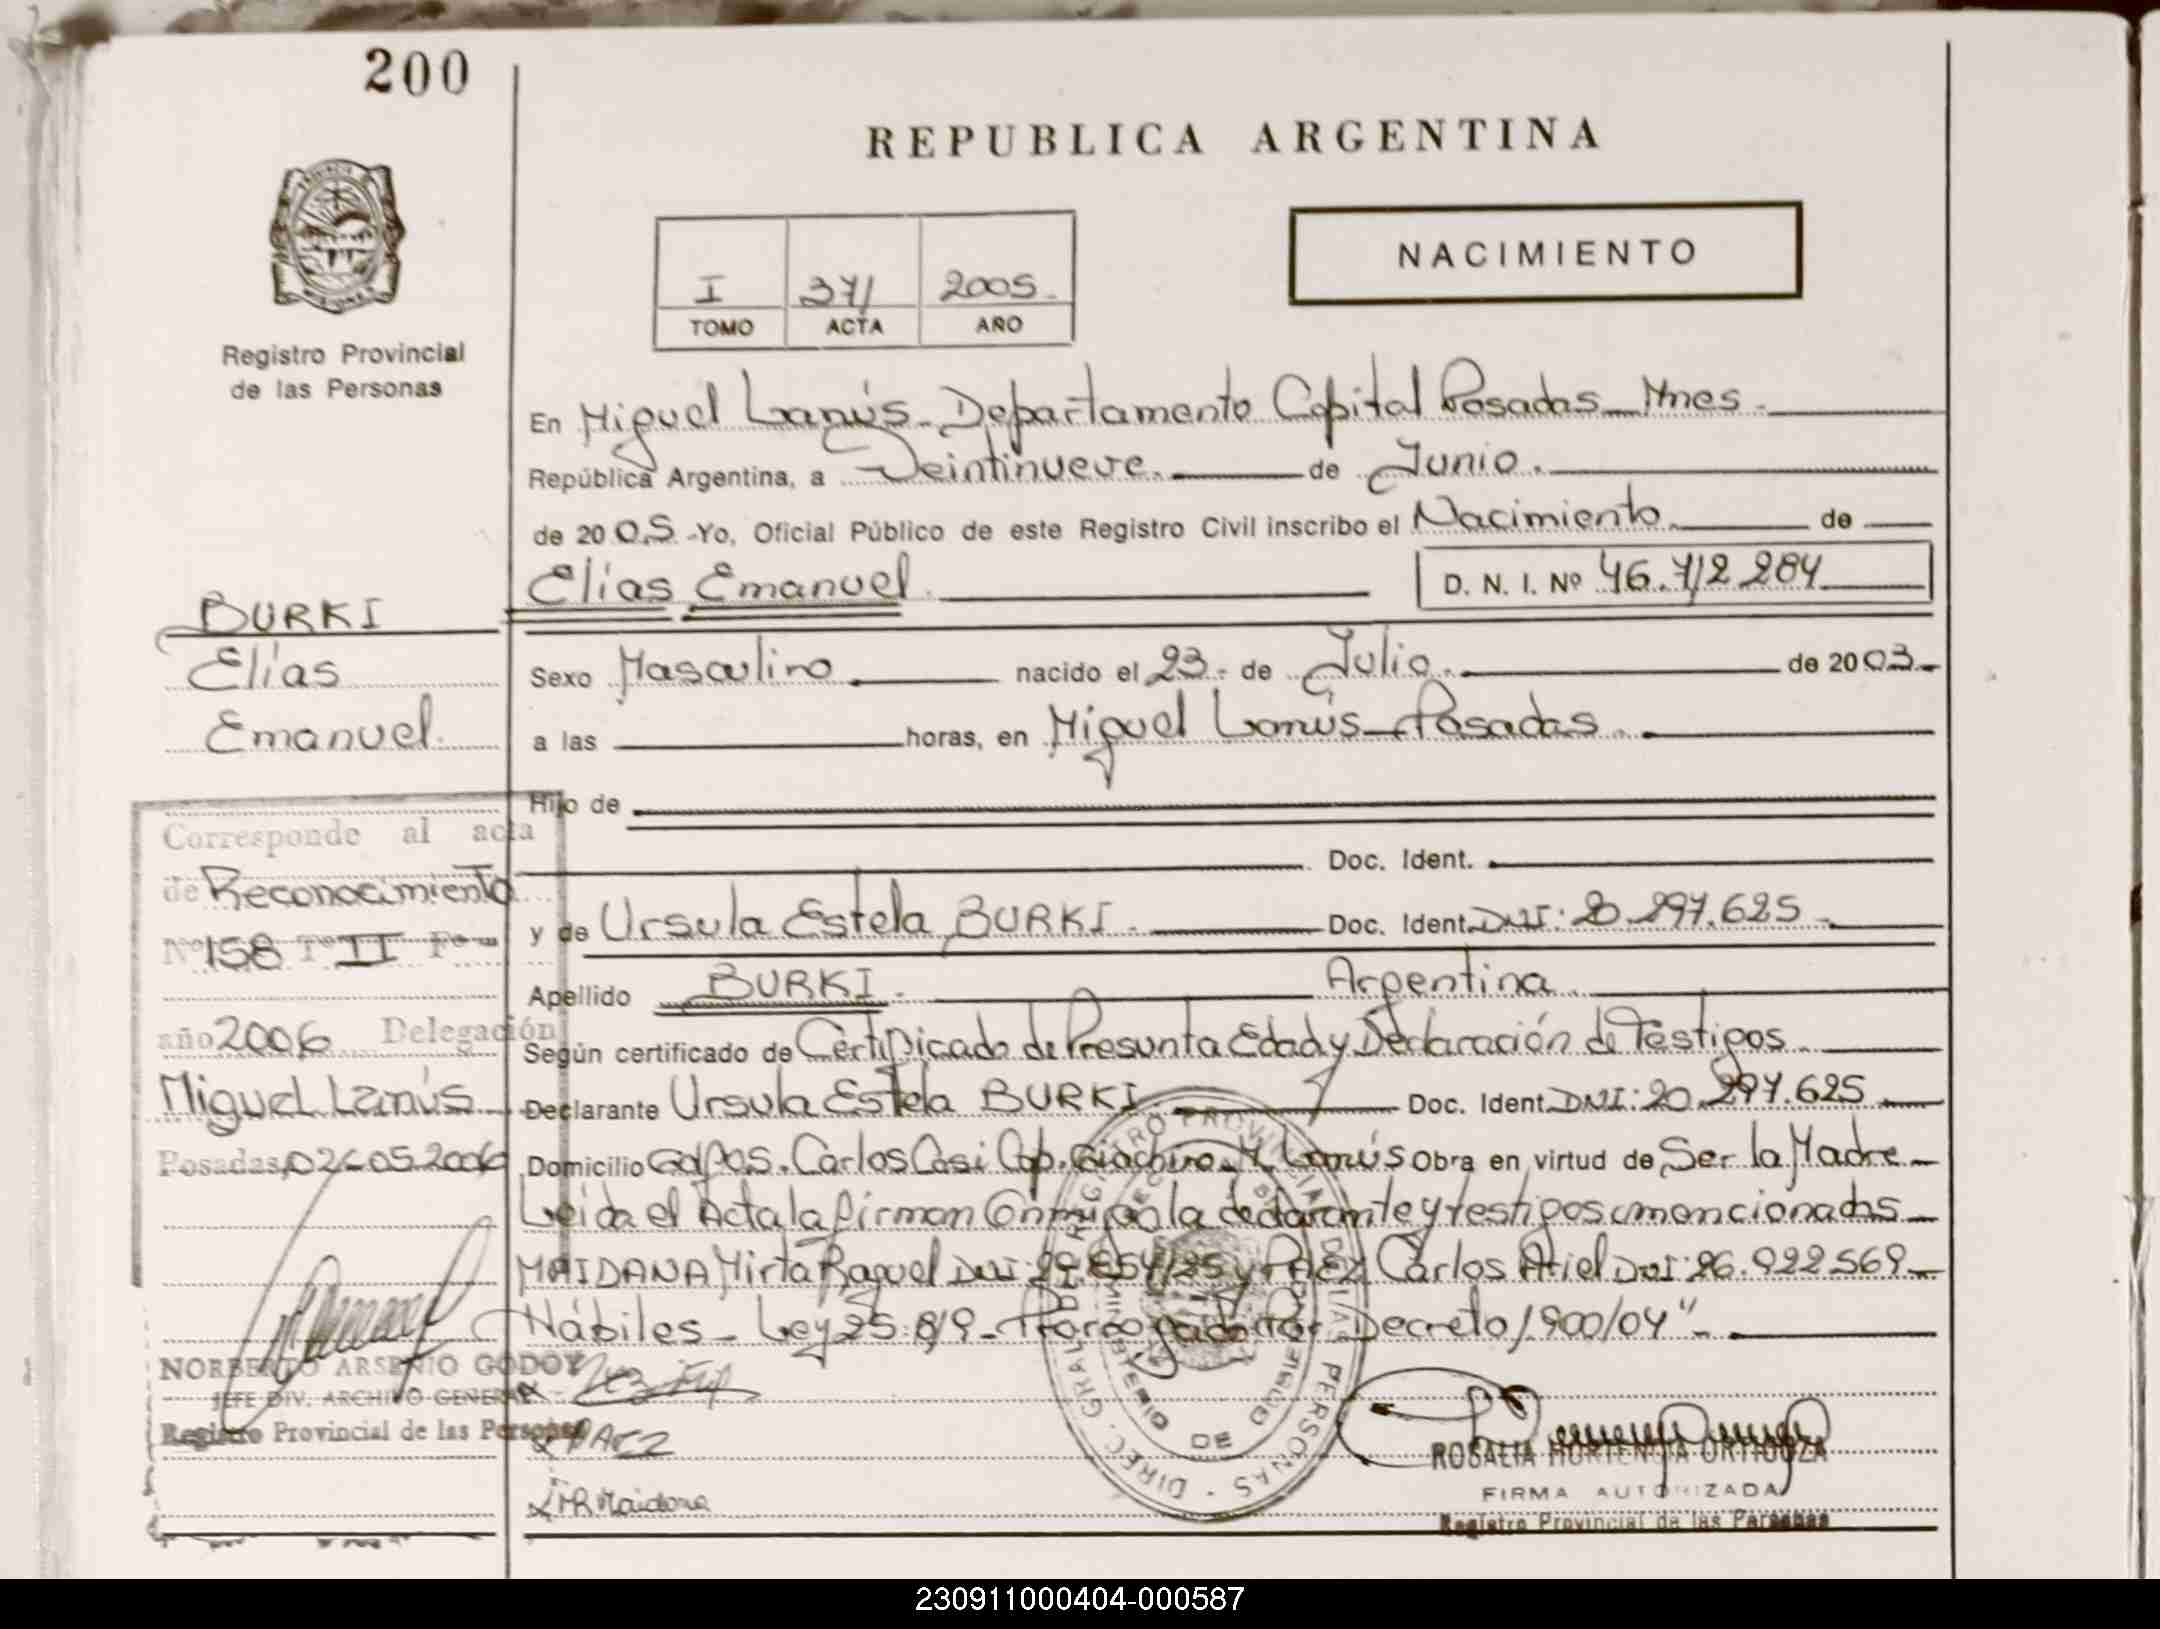 200
REPUBLICA ARGENTINA
NACIMIENTO
I 371 2005
TOMO ACTA AÑO
Registro Provincial
de las Personas
En Miguel Lanús - Departamento Capital Posadas - Mnes.
República Argentina, a Veintinueve. de Junio.
de 2005 - Yo, Oficial Público de este Registro Civil inscribo el Nacimiento de
Elías Emanuel. D. N. I. Nº 46.712.284
BURKI
Elías
Emanuel.
Sexo Masculino nacido el 23. de Julio. de 2003.
a las horas, en Miguel Lanús - Posadas.
Hijo de
Doc. Ident.
y de Ursula Estela BURKI. Doc. Ident. DNI: 20.297.625
Apellido BURKI. Argentina.
Según certificado de Certificado de Presunta Edad y Declaración de Testigos.
Declarante Ursula Estela BURKI Doc. Ident. DNI: 20.297.625
Domicilio Carlos Casi Cap. Giachino M. Lanús Obra en virtud de Ser la Madre
Leída el Acta la firman Conmigo la declarante y testigos mencionados
MAIDANA Mirta Raquel DNI: y PAEZ Carlos Ariel DNI: 26.922.569
Hábiles - Ley 25.819 - Prorrogado Por Decreto 1900/04"
Corresponde al acta
de Reconocimiento
Nº 158 Tº II Fº
año 2006 Delegación
Miguel Lanús
Posadas, 02-05-2006
NORBERTO ARSENIO GODOY
JEFE DIV. ARCHIVO GENERAL
Registro Provincial de las Personas
PAEZ
MR Maidana
DIREC. GRAL. DEL REGISTRO PROVINCIAL DE LAS PERSONAS
MINISTERIO DE GOBIERNO
ROSALIA HORTENCIA
FIRMA AUTORIZADA
Registro Provincial de las Personas
230911000404-000587